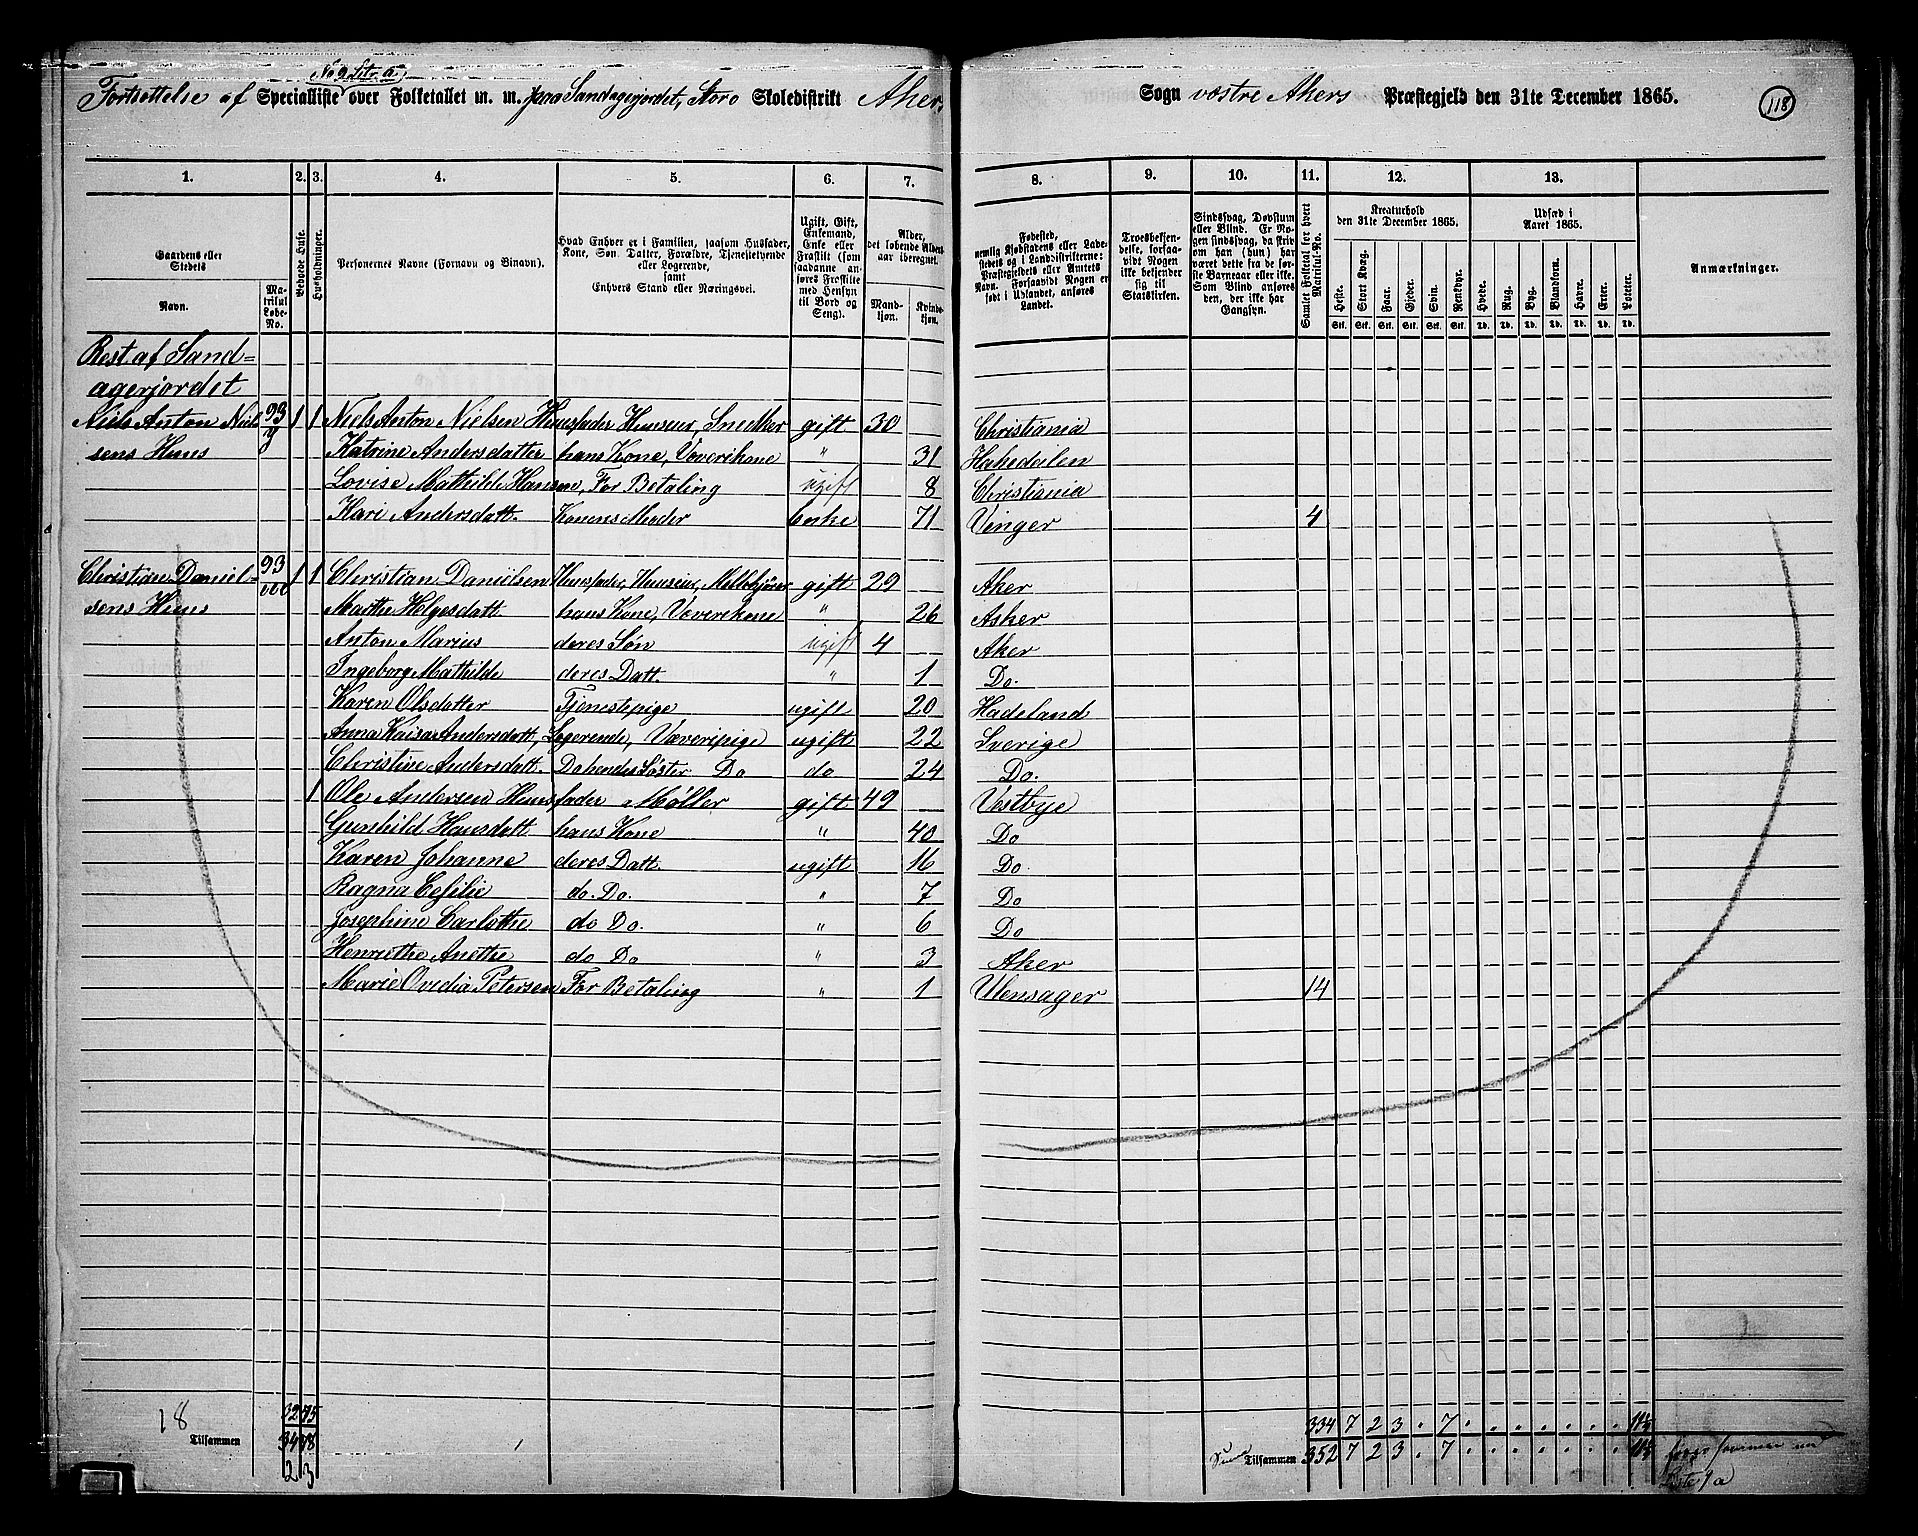 No 9 Litr. a.
Fortsettelse af Specialliste over Folketallet m. m. paa Sandagerjordet, Storo Skoledistrikt Aker, Sogn vestre Akers Præstegjeld den 31te December 1865. 118
1. 2. 3. 4. 5. 6. 7. 8. 9. 10. 11. 12. 13.
Gaardens eller Stedets
Navn.
Matrikul Løbe-No.
Beboede Huse.
Husholdninger.
Personernes Navne (Fornavn og Binavn).
Hvad Enhver er i Familien, saasom Husfader, Kone, Søn, Datter, Forældre, Tjenestetyende eller Logerende, samt Enhvers Stand eller Næringsvei.
Ugift, Gift, Enkemand, Enke eller Fraskilt (som saadanne anføres Fraskilte med Hensyn til Bord og Seng).
Alder, det løbende Aldersaar iberegnet.
Mandkjøn.
Kvindekjøn.
Fødested, nemlig Kjøbstadens eller Ladestedets og i Landdistrikterne: Præstegjeldets eller Amtets Navn. Forsaavidt Nogen er født i Udlandet, anføres Landet.
Troesbekjendelse, forsaavidt Nogen ikke bekjender sig til Statskirken.
Sindssvag, Døvstum eller Blind. Er Nogen sindssvag, da skrives om han (hun) har været dette fra de første Barneaar eller ikke. Som Blind anføres den, der ikke har Gangsyn.
Samlet Folketal for hvert Matrikul-No.
Kreaturhold den 31te December 1865.
Heste. Stort Kvæg. Faar. Gjeder. Svin. Renkdyr.
Udsæd i Aaret 1865.
Hvede. Rug. Byg. Blandkorn. Havre. Erter. Poteter.
Stk. Stk. Stk. Stk. Stk. Stk. Td. Td. Td. Td. Td. Td. Td.
Anmærkninger.
Rest af Sand=
agerjordet
Niels Anton Niel 93 1 1 Niels Anton Nielsen Huusfader Huuseier, Snedker gift 30 Christiania
sens Huus Katrine Andersdatter hans Kone, Væverikone " 31 Hakedalen
Lovise Mathilde Hansen, For Betaling ugift 8 Christiania
Kari Andersdatt. Konens Moder Enke 71 Vinger 4
Christian Daniel= 93 1 1 Christian Danielsen Huusfader, Huuseier, gift 29 Aker
sens Huus Marthe Helgesdatt hans Kone, Væverikone " 26 Asker
Anton Marius deres Søn ugift 4 Aker
Ingeborg Mathilde deres Datt. " 1 Do.
Karen Olsdatter Tjenestepige ugift 20 Hadeland
Anna Kaisa Andersdatt, Logerende, Væveripige ugift 22 Sverige
Christine Andersdatt. Do hendes Søster Do do 24 Do.
1 Ole Andersen Huusfader Møller gift 49 Vestbye
Gunhild Hansdatt hans Kone " 40 Do
Karen Johanne deres Datt. ugift 16 Do.
Ragna Cesilie do. Do. " 7 Do
Josephine Carlotte do Do. " 6 Do
Henriette Anette do Do " 3 Aker
Marie Ovidia Petersen For Betaling " 1 Ulensager 14
18
32 75 334 7 2 3 . 7 . . . . . .
Tilsammen 34 78 Tilsammen 352 7 2 3 . 7 . . . . . .
2 3 Liste 9 a